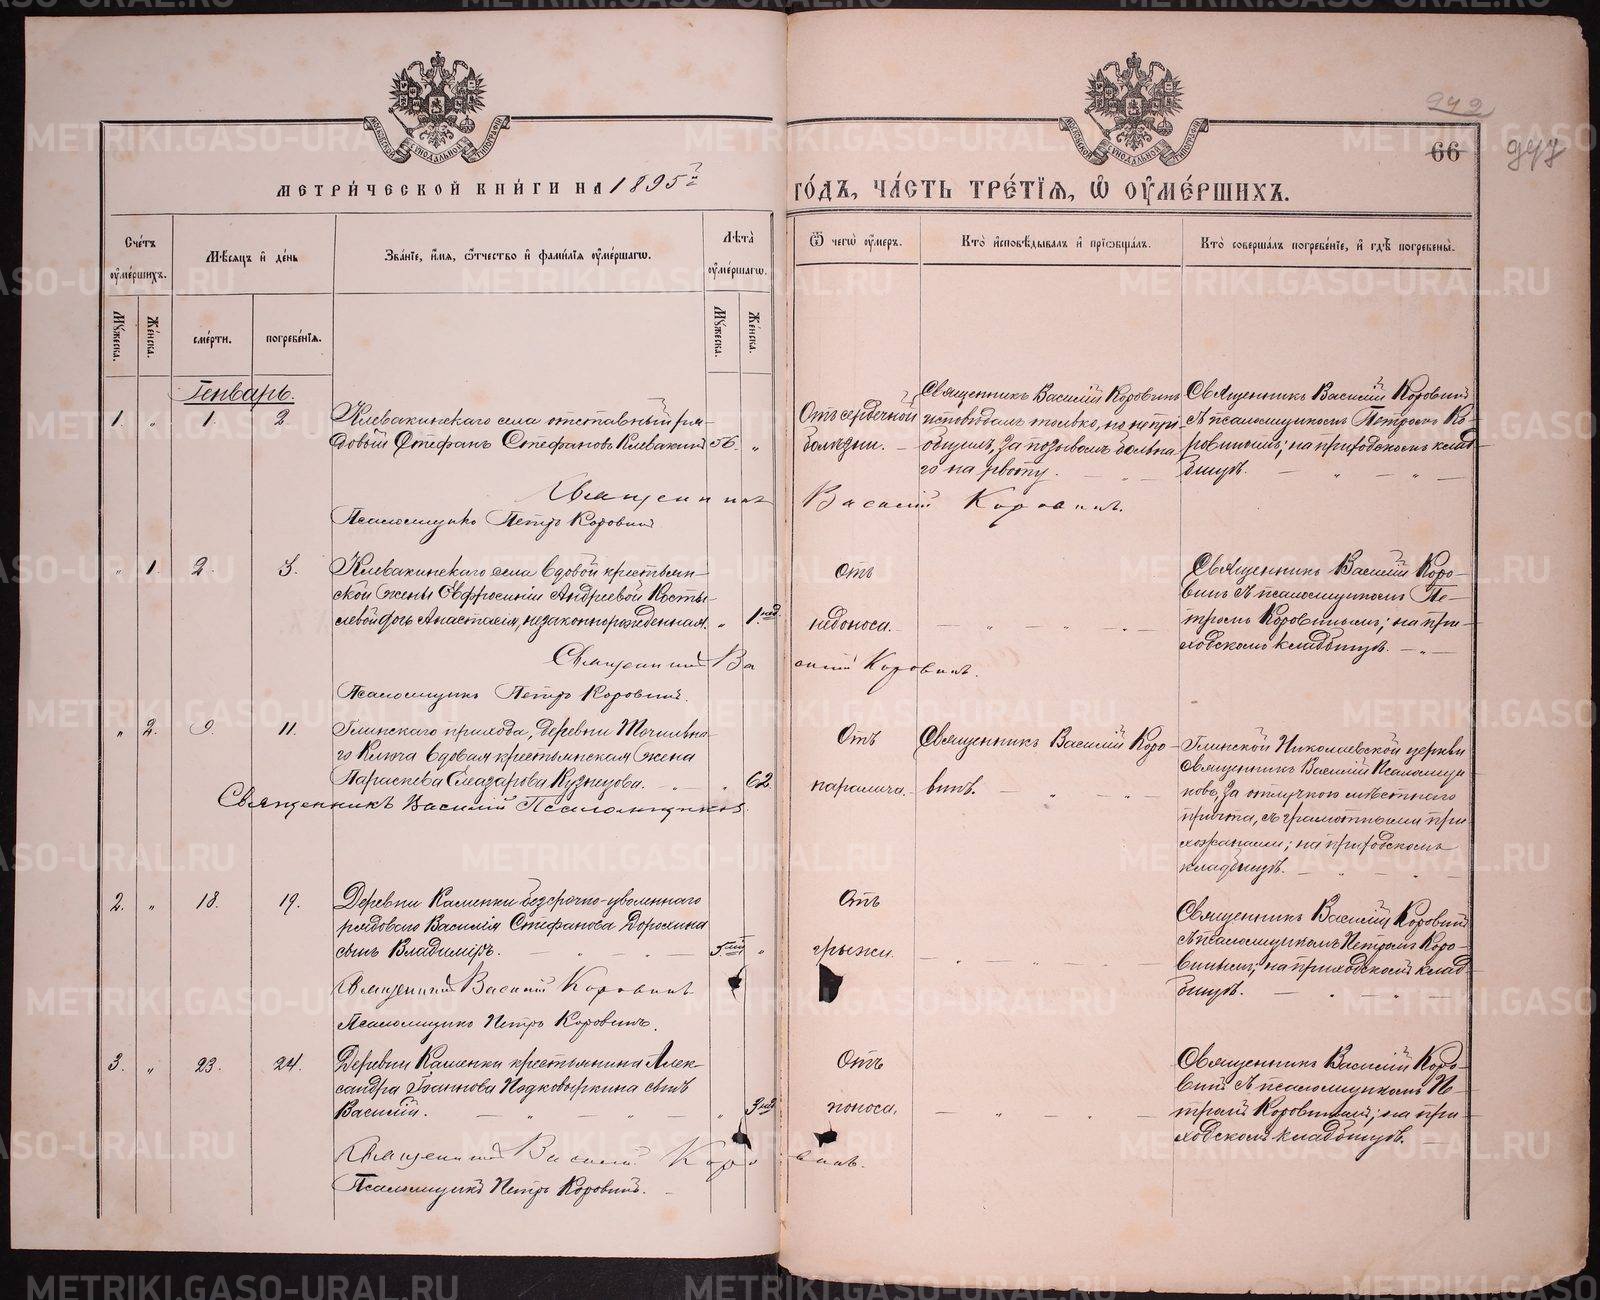 942
66
947
МЕТРИ́ЧЕСКОЙ КНИ́ГИ НА 1895й
ГО́ДЪ, ЧА́СТЬ ТРЕ́ТЇѦ, Ѽ ОУ҆МЕ́РШИХЪ.
МОСКОВСКОЙ СѴНОДАЛЬНОЙ ТИПОГРАФІИ
МОСКОВСКОЙ СѴНОДАЛЬНОЙ ТИПОГРАФІИ
Сче́тъ оу҆ме́ршихъ.
Мѣ́сяцъ и҆ де́нь
Зва́нїе, и҆́мя, ѻ҆́тчество и҆ фами́лїя оу҆ме́ршагѡ.
Лѣ́та оу҆ме́ршагѡ.
Ѿ чегѡ̀ оу҆́меръ.
Кто̀ и҆сповѣ́дывалъ и҆ прїѡбща́лъ.
Кто̀ соверша́лъ погребе́нїе, и҆ гдѣ̀ погребены̀.
Му́жеска.
Же́нска.
сме́рти.
погребе́нїѧ.
Му́жеска.
Же́нска.
Генварь.
1. „ 1. 2
Клевакинскаго села отставный ря-
довой Стефанъ Стефановъ Клевакин 56. „
Отъ сердечной
болѣзни. —
Священникъ Василій Коровинъ
исповѣдалъ только, но не прі-
общилъ, за позывомъ больна-
го на рвоту.
Священникъ Василій Коровин
съ псаломщикомъ Петромъ Ко-
ровинымъ; на приходскомъ клад-
бищѣ. — „ — „ —
Священникъ Василій Коровинъ.
Псаломщикъ Петръ Коровин
„ 1. 2. 3.
Клевакинскаго села вдовой крестьян-
ской жены Евфросиніи Андреевой Косты-
левой дочь Анастасія, незаконнорожденная. „ 1. нед
Отъ
недоноса. — „ — „ — „ —
Священникъ Василій Коро-
винъ съ псаломщикомъ Пе-
тромъ Коровинымъ; на при-
ходскомъ кладбищѣ. — „ —
Священник Василій Коровинъ.
Псаломщикъ Петръ Коровин.
„ 2. 9. 11.
Глинскаго прихода, деревни Точильна-
го Ключа вдовая крестьянская жена
Параскева Елеазарова Кузнецова. — „ 62
Отъ
паралича. —
Священникъ Василій Коро-
винъ. — „ — „ —
Глинской Николаевской церкви
Священникъ Василій Псаломщи-
ковъ, за отлучкою мѣстнаго
причта, съ грамотными при-
хожанами; на приходскомъ
кладбищѣ. — „ — „ —
Священникъ Василій Псаломщиковъ.
2. „ 18. 19.
Деревни Каменки безсрочно-уволеннаго
рядоваго Василія Стефанова Дорохина
сынъ Владиміръ. — „ — „ — „
Отъ
грыжи. — „ — „ — „ —
Священникъ Василій Коровин
съ псаломщикомъ Петромъ Коро-
винымъ; на приходскомъ клад-
бищѣ. — „ — „ —
Священник Василій Коровинъ
Псаломщикъ Петръ Коровинъ.
3. „ 23. 24.
Деревни Каменки крестьянина Алек-
сандра Іоаннова Подковыркина сынъ
Василій. — „ — „ — „ 3 нед
Отъ
поноса. — „ — „ —
Священникъ Василій Коро-
вин съ псаломщикомъ Пе-
тромъ Коровинымъ; на при-
ходскомъ кладбищѣ. —
Священник Василій Коровинъ.
Псаломщикъ Петръ Коровин. —
METRIKI.GASO-URAL.RU